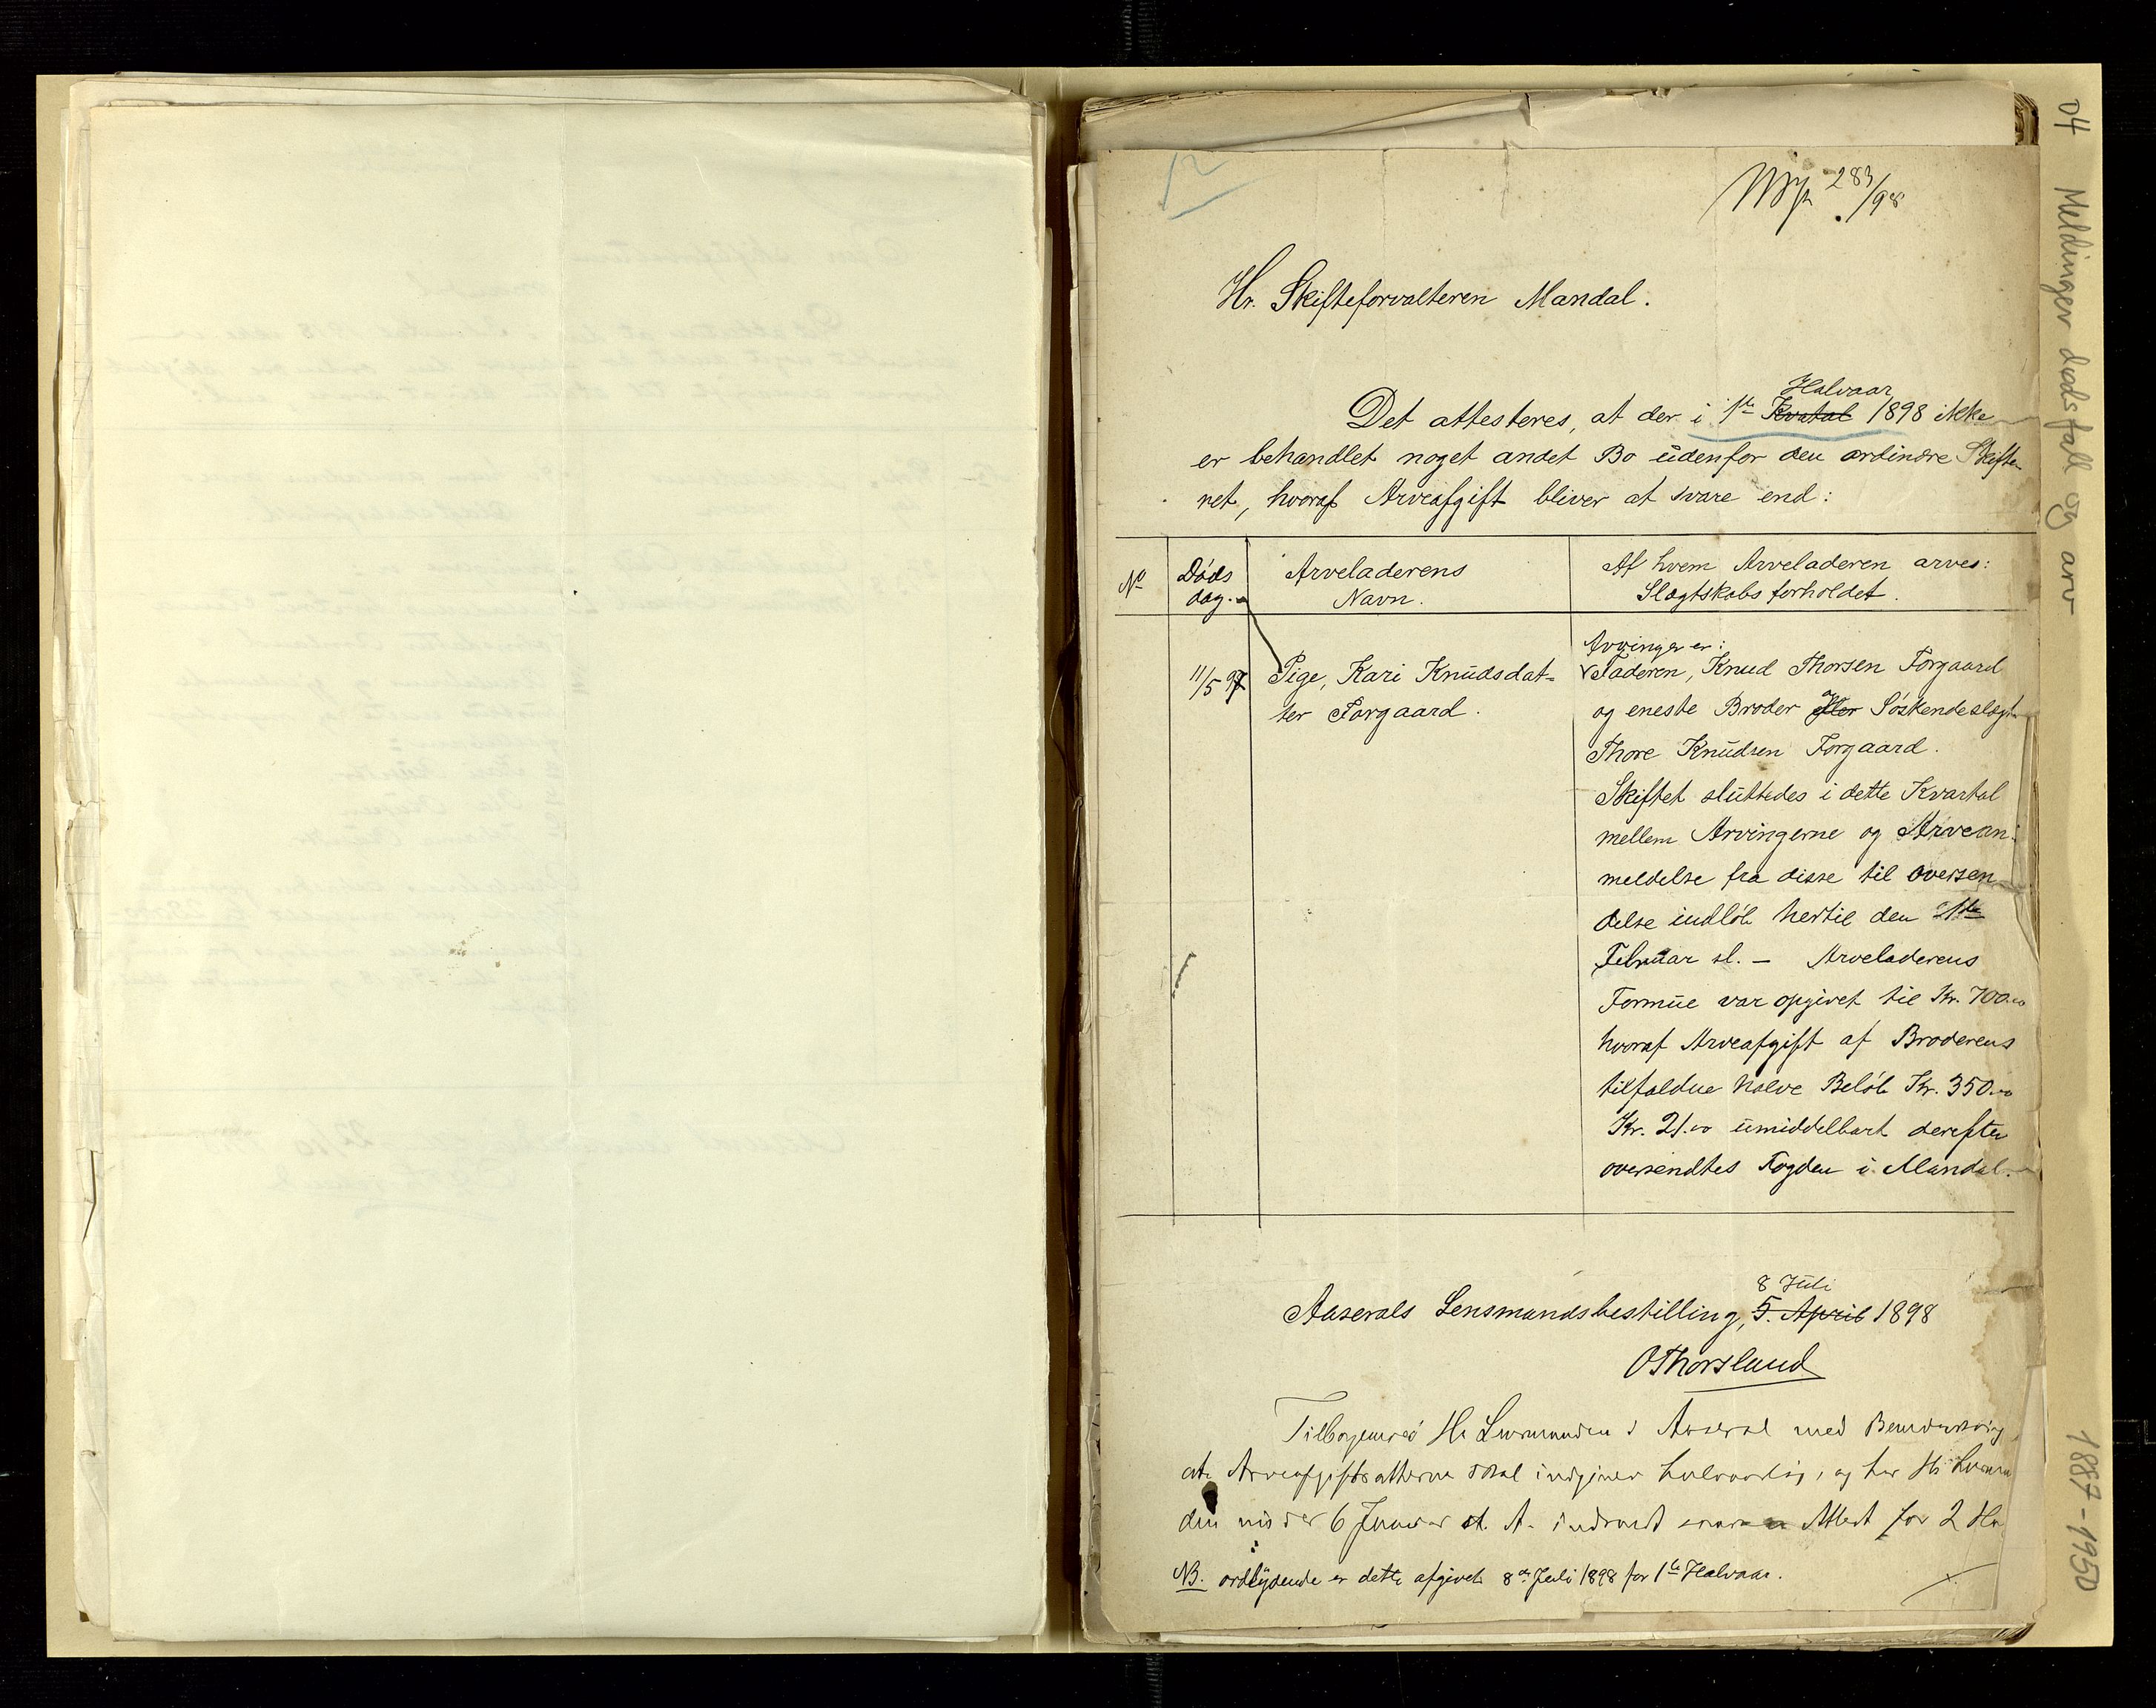 12
283/98
Hr. Skifteforvalteren Mandal.
Halvaar
Det attesteres, at der i 1ste Kvatal 1898 ikke
er behandlet noget andet Bo udenfor den ordinære Skifte-
ret, hvoraf Arveafgift bliver at svare end:
No
Döds
dag.
Arveladerens
Navn.
Af hvem Arveladeren arves:
Slægtskabsforholdet.
11/5 97
Pige, Kari Knudsdat=
ter Forgaard.
Arvinger er:
Faderen, Knud Thorsen Forgaard
og eneste Broder Söskendeslægt
Thore Knudsen Forgaard.
Skiftet sluttedes i dette Kvartal
mellem Arvingerne og Arvean:
meldelse fra disse til oversen
delse indlöb hertil den
Februar sl. — Arveladerens
Formue var opgivet til Kr. 700.00
hvoraf Arveafgift af Broderens
tilfaldne halve Belöb Kr. 350.00
Kr. 21.00 umiddelbart derefter
oversendtes Fogden i Mandal.
8 Juli
Aaserals Lensmandsbestilling, 5. April 1898
OThorsland
Hr Lensmanden i Aaseral med Bemærkning
at Arveafgiftsatterne skal indgives halvaarlig, og har Hr
den 6 Januar A. Attest for 2 Ha
NB. ordlydende er dette afgivet 8de Juli 1898 for 1ste Halvaar.
04 Meldinger dødsfall og arv
1887-1950